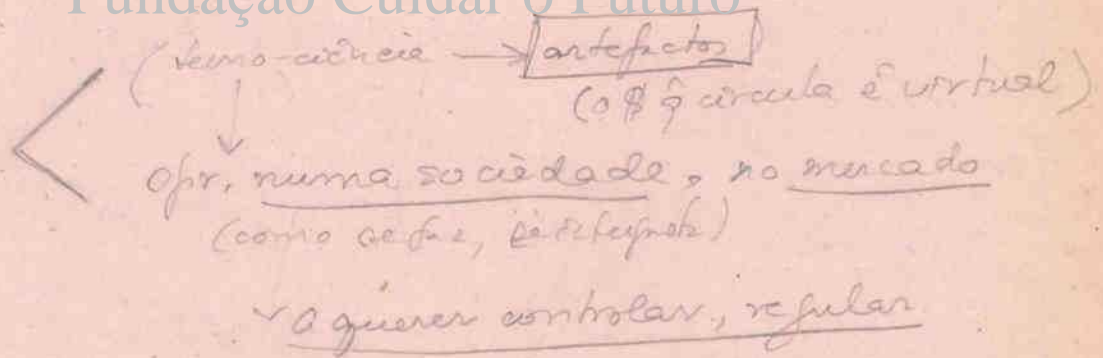 Fundação Cuidar o Futuro
(tecno-ciência → artefactos
(o $ q̂ circula é virtual)
opr, numa sociedade, no mercado
(como se faz,
o querer controlar, regular